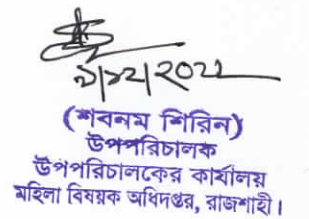 ৯/১২/২০২১
(শবনম শিরিন)
উপপরিচালক
উপপরিচালকের কার্যালয়
মহিলা বিষয়ক অধিদপ্তর, রাজশাহী।